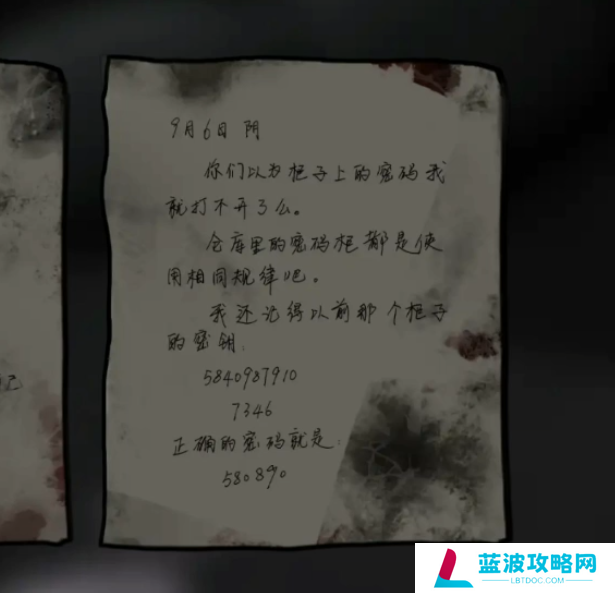 9月6日 阴
你们以为柜子上的密码我
就打不开了么。
仓库里的密码柜都是使
用相同规律吧。
我还记得以前那个柜子
的密钥:
5840987910
7346
正确的密码就是:
580890
己
蓝波攻略网
LBTDOC.COM